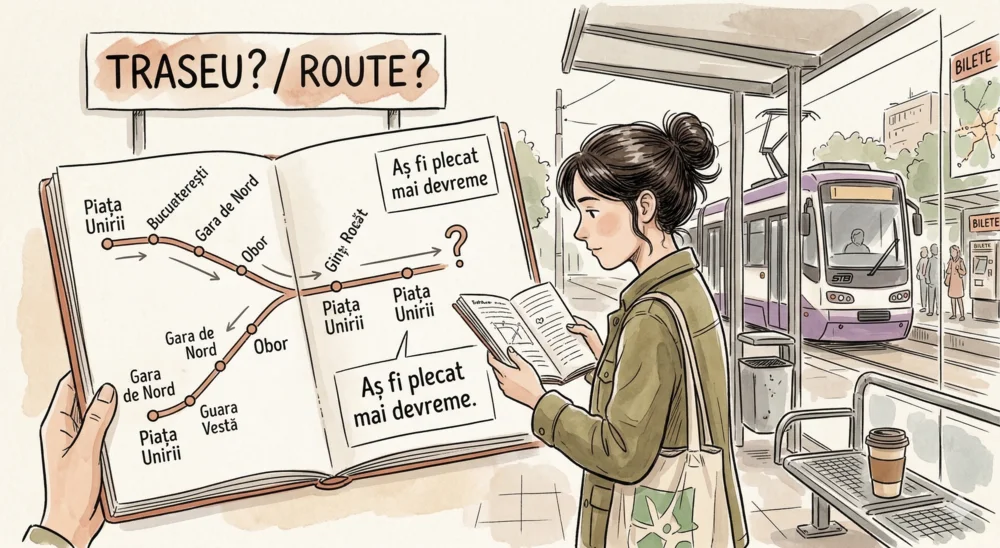 TRASEU? / ROUTE?
Piața
Unirii
Bucuaterești
Gara de Nord
Obor
Aș fi plecat
mai devreme
Piața
Unirii
Piața
Unirii
?
Gara de
Nord
Obor
Gara
de Nord
Guara
Vestă
Piața
Unirii
Aș fi plecat
mai devreme.
STB
BILETE
BILETE